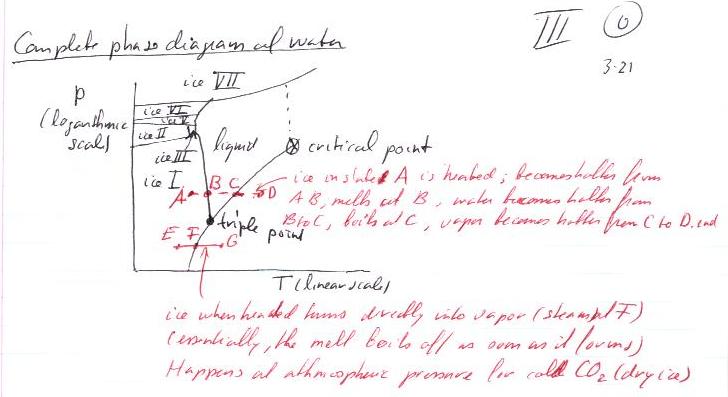 Complete phase diagram of water
III 6
3.21
P
(logarithmic
scale)
ice VII
ice VI
ice V
ice II
ice III
ice I
liquid
critical point
A B C D
ice in state A is heated; becomes hotter from
AB, melts at B, water becomes hotter from
B to C, boils at C, vapor becomes hotter from C to D. end
triple point
E F G
T (linear scale)
ice when heated turns directly into vapor (steam at F)
(essentially, the melt boils off as soon as it forms)
Happens at athmospheric pressure for cold CO2 (dry ice)